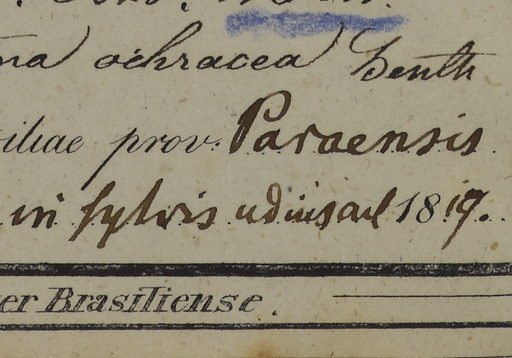 ochracea Benth
iliae prov. Paraensis
in sylvis udiuscul 1819.
er Brasiliense.